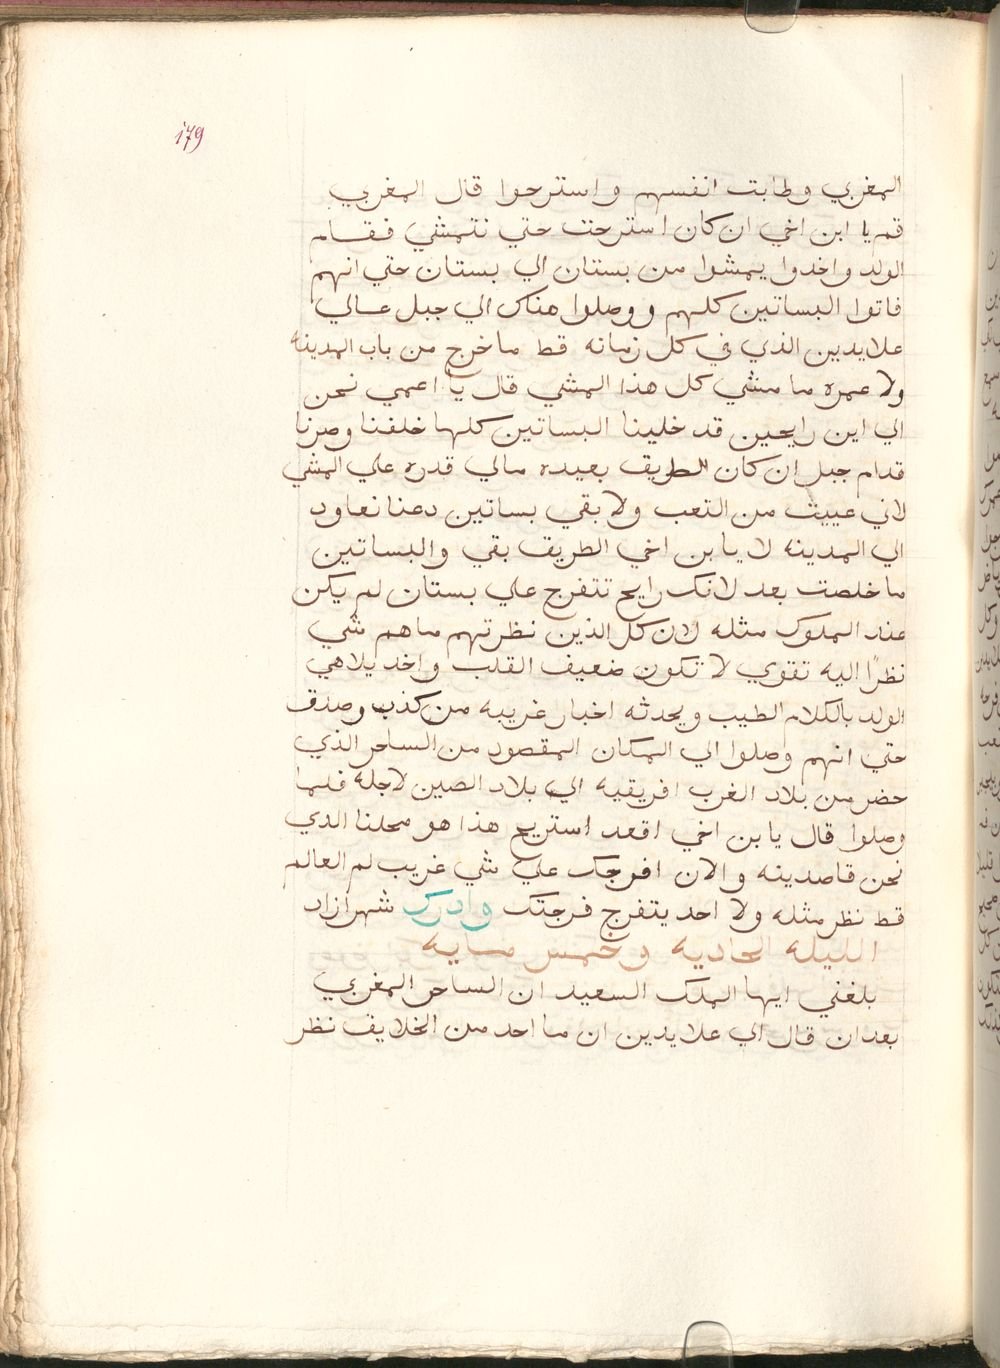 179
المغربي وطابت انفسهم واسترحوا قال المغربي
قم يا ابن اخي ان كان استرحت حتي نتمشي فقام
الولد واخدوا يمشوا من بستان الي بستان حتي انهم
فاتوا البساتين كلهم ووصلوا هناك الي جبل عالي
علايدين الذي في كل زمانه قط ما خرج من باب المدينه
ولا عمره ما مشي كل هذا المشي قال يا اعمي نحن
الي اين رايحين قد خلينا البساتين كلها خلفنا وصرنا
قدام جبل ان كان الطريق بعيده مالي قدره علي المشي
لاني عييت من التعب ولا بقي بساتين دعنا نعاود
الي المدينه لا يا بن اخي الطريق بقي والبساتين
ما خلصت بعد لانك رايح تتفرج علي بستان لم يكن
عند الملوك مثله لان كل الذين نظرتهم ما هم شي
نظرًا اليه تقوي لا تكون ضعيف القلب واخد يلاهي
الولد بالكلام الطيب ويحدثه اخبار غريبه من كذب وصدق
حتي انهم وصلوا الي المكان المقصود من الساحر الذي
حضر من بلاد الغرب افريقيه الي بلاد الصين لاجله فلما
وصلوا قال يا بن اخي اقعد استريح هذا هو محلنا الدي
نحن قاصدينه والان افرجك علي شي غريب لم العالم
قط نظر مثله ولا احد يتفرج فرجتك وادرك شهرازاد
الليله الحاديه وخمس مايه
بلغني ايها الملك السعيد ان الساحر المغربي
بعد ان قال الي علايدين ان ما احد من الخلايف نظر